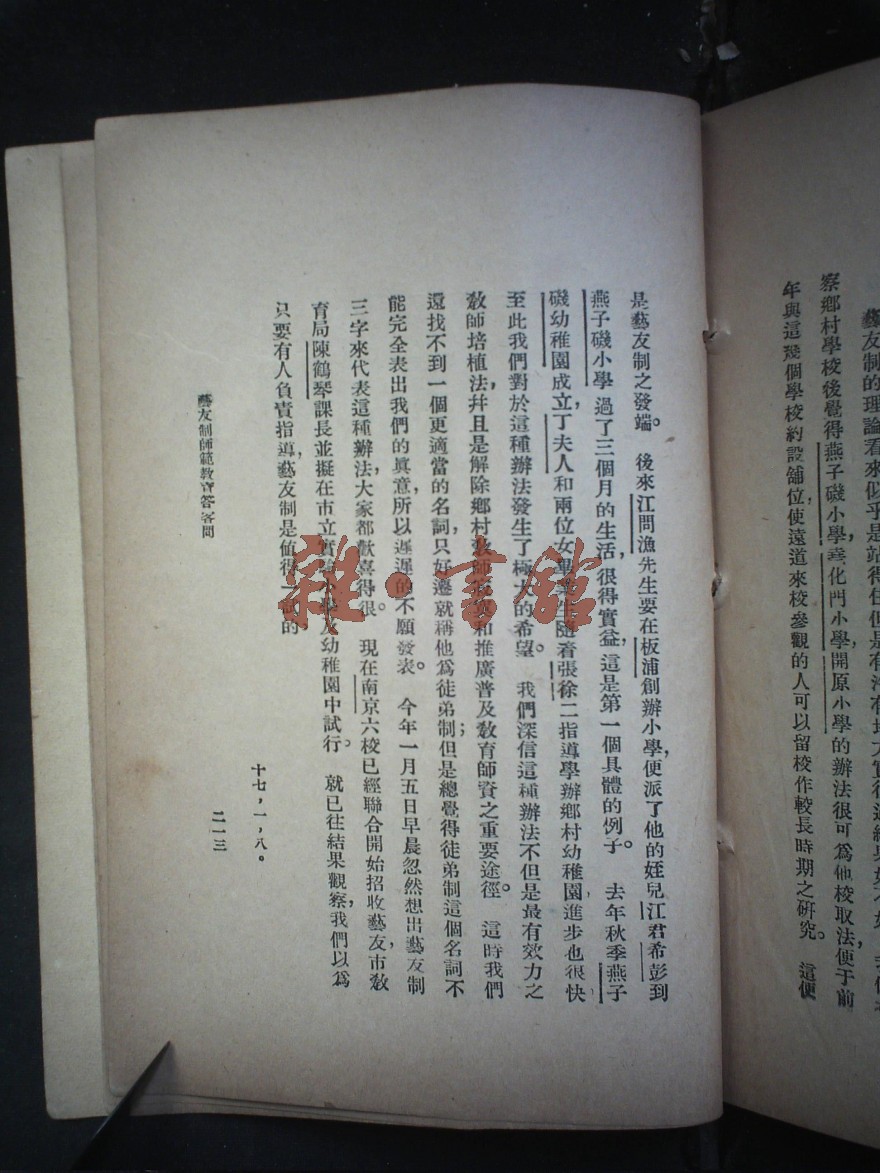 藝友制的理論看來似乎是站得住但是有沒有
察鄉村學校後覺得燕子磯小學,堯化門小學,開原小學的辦法很可為他校取法,便于前
年與這幾個學校約設舖位,使遠道來校參觀的人可以留校作較長時期之研究。 這便
是藝友制之發端。 後來江問漁先生要在板浦創辦小學,便派了他的姪兒江君希彭到
燕子磯小學過了三個月的生活,很得實益,這是第一個具體的例子。 去年秋季燕子
磯幼稚園成立,丁夫人和兩位女畢業生隨着張徐二指導學辦鄉村幼稚園進步也很快
至此我們對於這種辦法發生了極大的希望。 我們深信這種辦法不但是最有效力之
教師培植法,幷且是解除鄉村教師寂寞和推廣普及教育師資之重要途徑。 這時我們
還找不到一個更適當的名詞,只好遷就稱他爲徒弟制;但是總覺得徒弟制這個名詞不
能完全表出我們的眞意,所以遲遲的不願發表。 今年一月五日早晨忽然想出藝友制
三字來代表這種辦法,大家都歡喜得很。 現在南京六校已經聯合開始招收藝友市教
育局陳鶴琴課長並擬在市立實驗小學及幼稚園中試行。 就已往結果觀察,我們以爲
只要有人負責指導,藝友制是値得一試的,
十七,一,八。
藝友制師範教育答客問
二一三
雜·書館